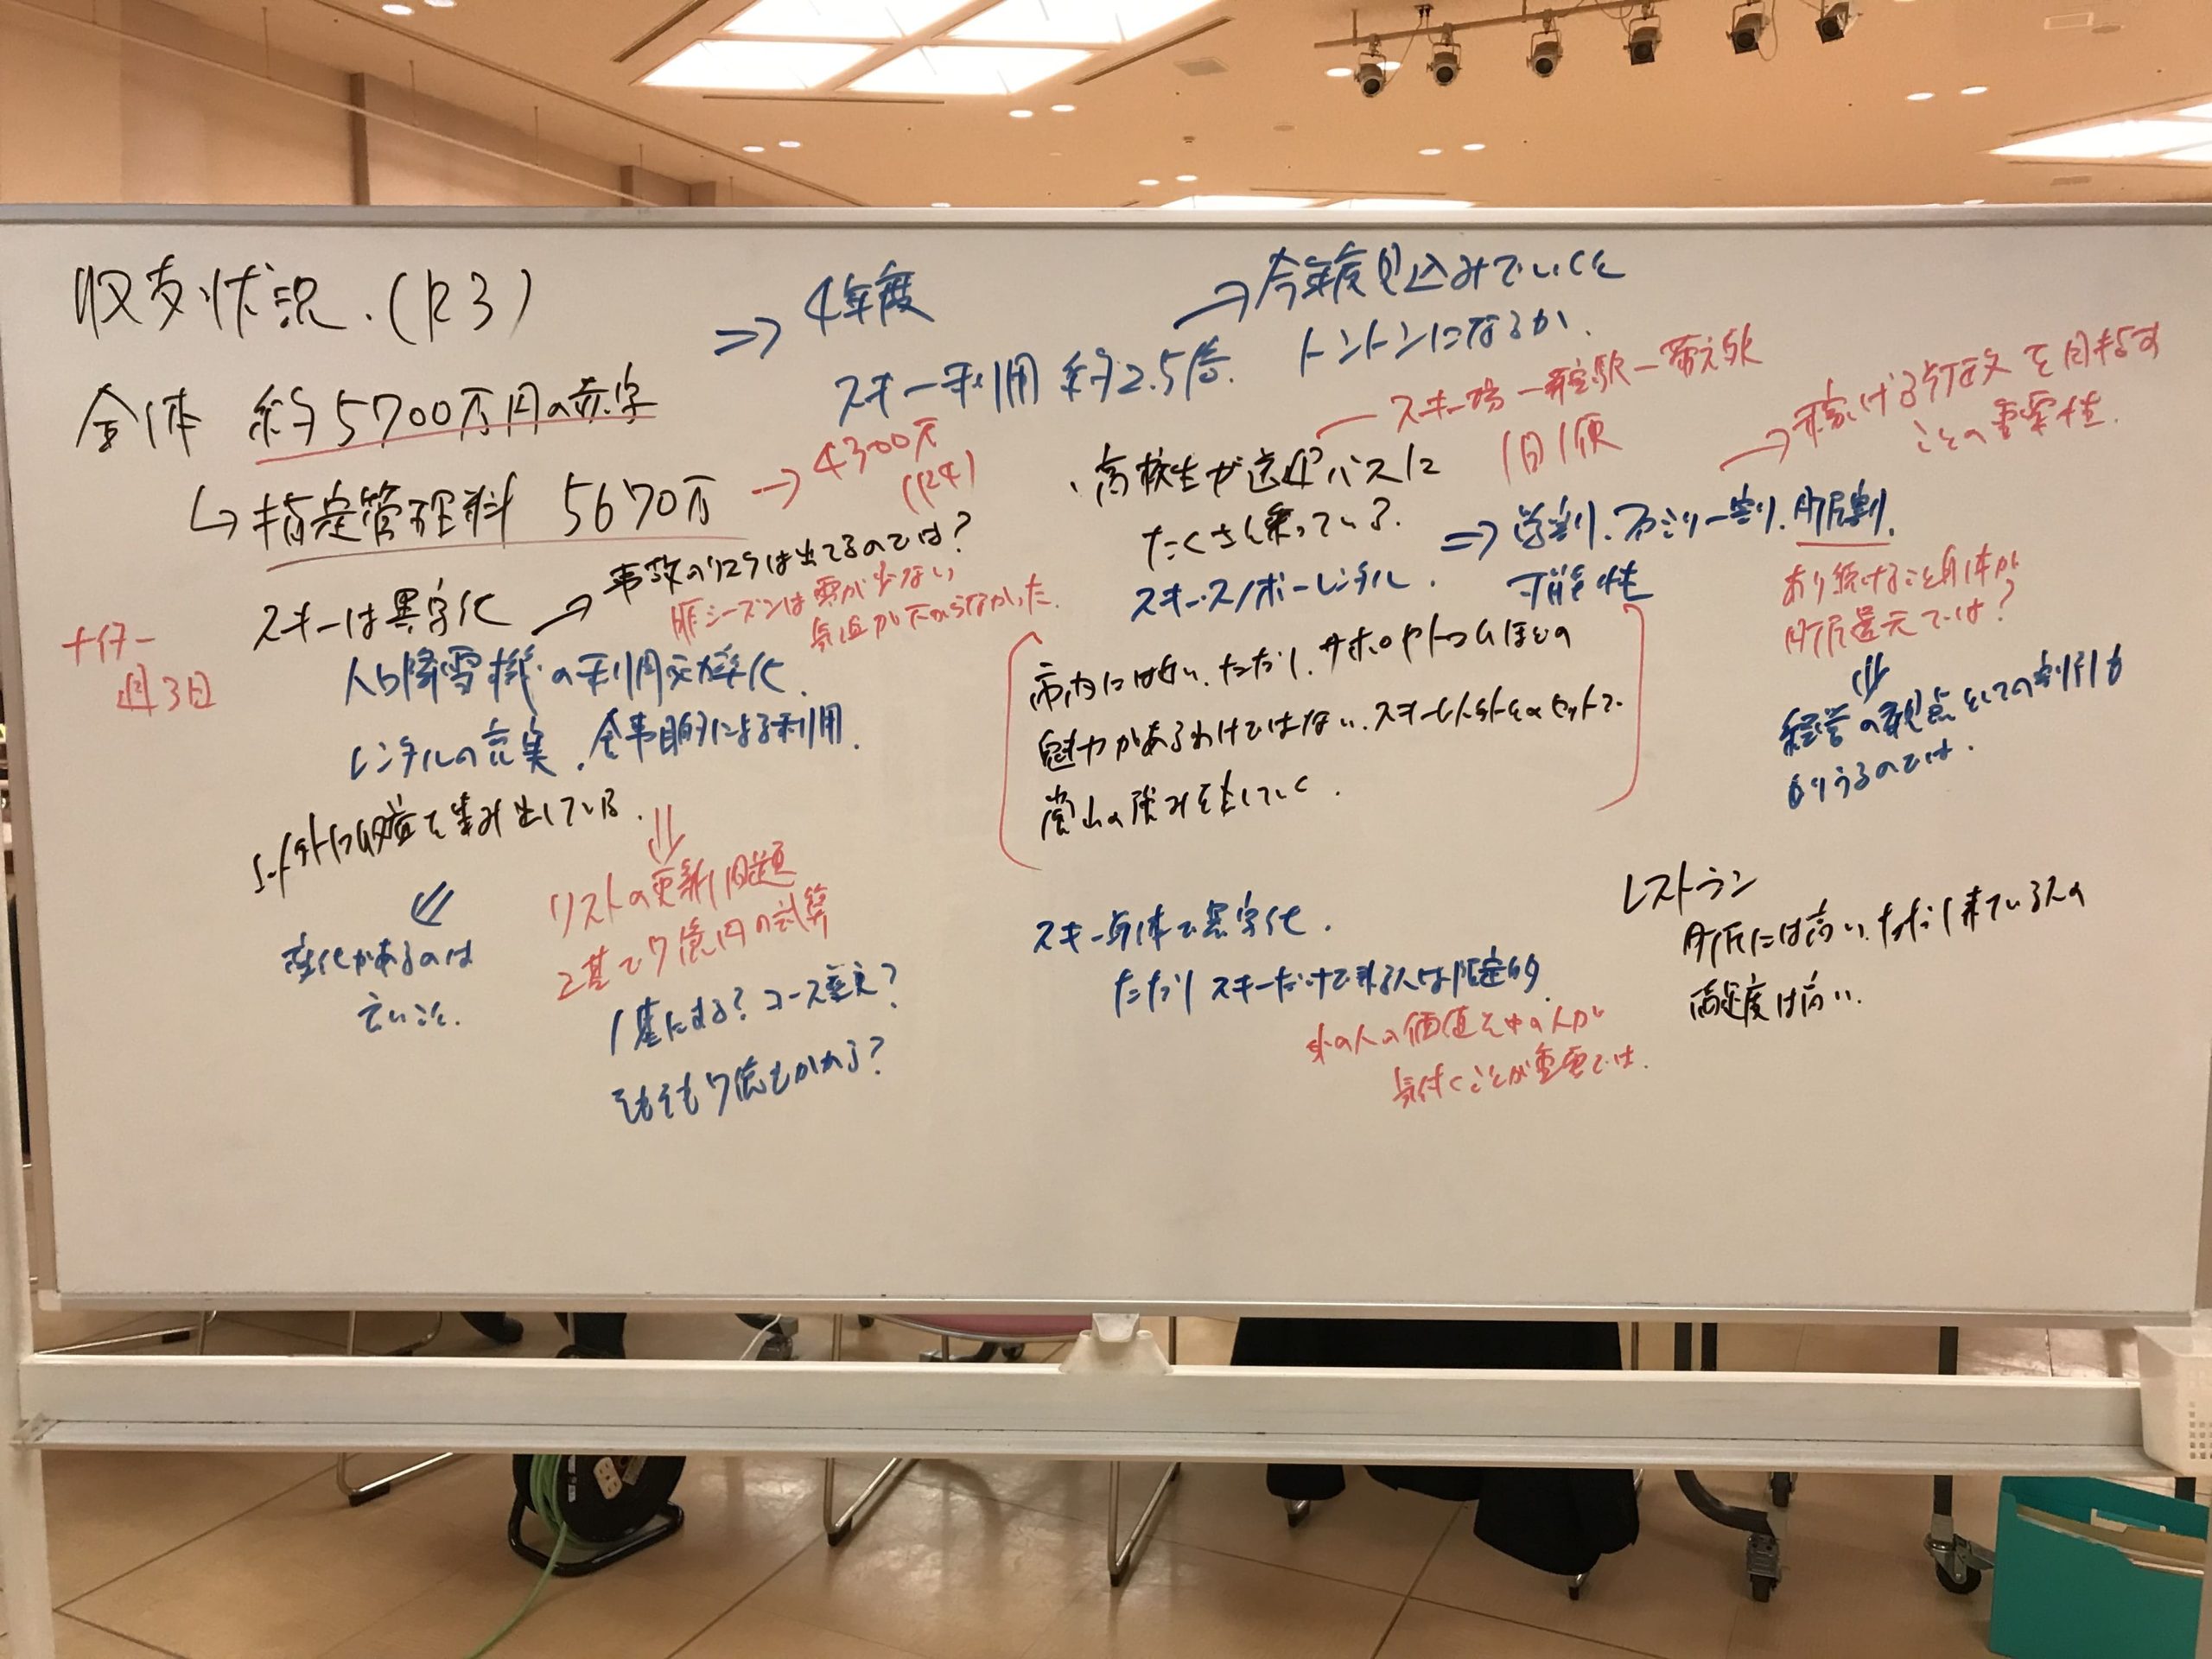 収支状況.(R3)
全体 約5700万円の赤字
↳指定管理料 5670万
→4300万
(R4)
⇒ 4年度
スキー利用 約2.5倍.
→今年度見込みでいくと
トントンになるか.
スキーは黒字化
→事故のリスクは出てるのでは?
昨シーズンは雪が少ない
気温が下がらなかった.
ナイター
週3日
人口降雪機の利用効率化.
レンタルの充実.
利用.
収益を生み出している.
⇓
リフトの更新問題
2基で7億円の試算
1基にする? コース変更?
そもそも7億もかかる?
変化があるのは
良いこと.
・高校生が送迎バスに
たくさん乗っている.
スキー場
1日1便
スキー・スノボーレンタル.
⇒学割.ファミリー割.町民割.
可能性
→稼げる行政を目指す
ことの重要性.
あり続けること自体が
町民還元では?
⇓
経営の観点としての割引も
ありうるのでは.
市内には近い.ただし.サホロやトマムほどの
魅力があるわけではない.スキー以外とのセットで
当山の強みを出していく.
スキー自体で黒字化.
ただし スキーだけで来る人は限定的.
外の人の価値を中の人が
気付くことが重要では.
レストラン
町民には高い.ただし来ている人の
満足度は高い.